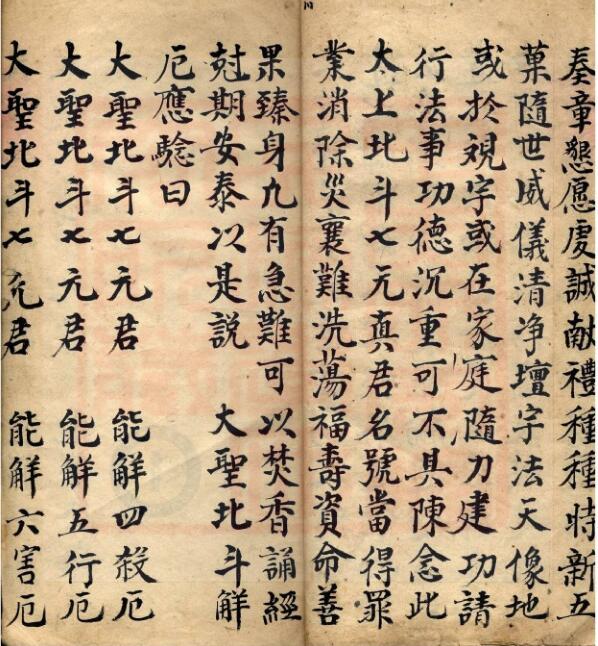 奏章懇愿虔誠献禮種種時新五
菓隨世威儀清净壇宇法天像地
或於視字或在家庭隨力建功請
行法事功德沉重可不具陳念此
太上北斗七元真君名號當得罪
業消除災襄難洗蕩福壽資命善
果臻身凢有急難可以焚香誦經
尅期安泰以是說　大聖北斗解
厄應驗曰
大聖北斗七元君　能解四殺厄
大聖北斗七元君　能解五行厄
大聖北斗七元君　能解六害厄